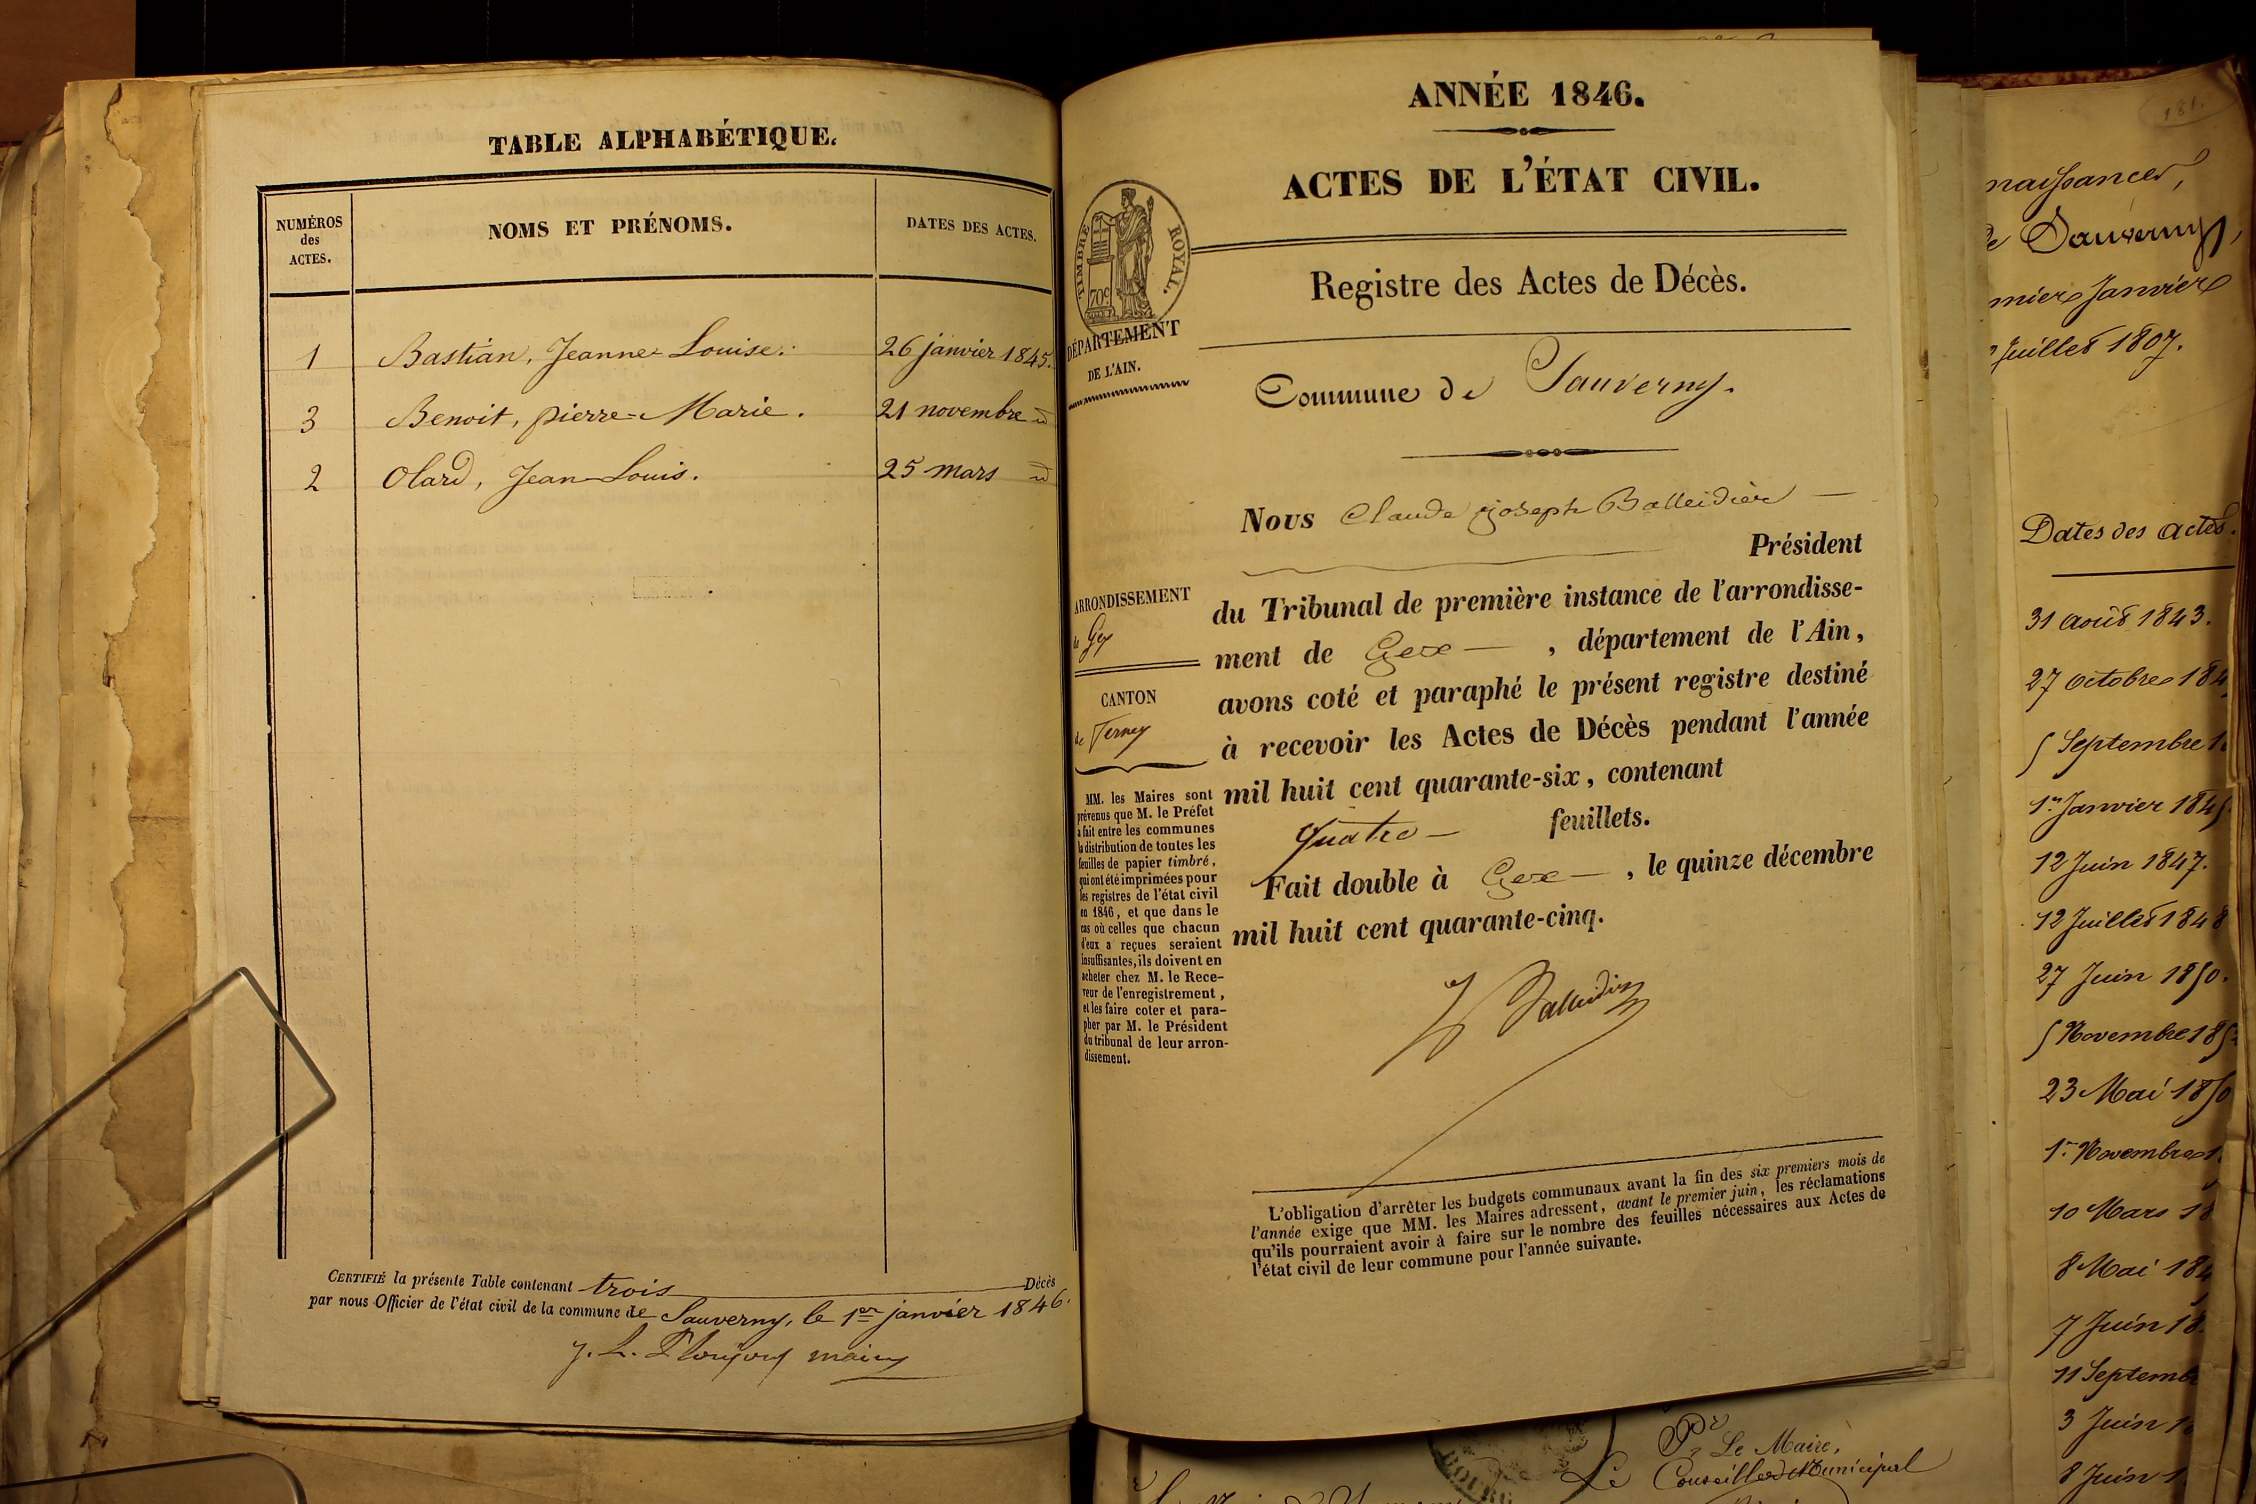 TABLE ALPHABÉTIQUE.
NUMÉROS
des
ACTES.
NOMS ET PRÉNOMS.
DATES DES ACTES.
1 Bastian, Jeanne Louise. 26 janvier 1845.
3 Benoit, pierre-Marie. 21 novembre id
2 Olard, Jean-Louis. 25 mars id
CERTIFIÉ la présente Table contenant trois Décès
par nous Officier de l'état civil de la commune de Sauverny, le 1er janvier 1846.
J. L. maire
ANNÉE 1846.
ACTES DE L'ÉTAT CIVIL.
TIMBRE ROYAL.
70c
DÉPARTEMENT
DE L'AIN.
Registre des Actes de Décès.
Commune de Sauverny.
ARRONDISSEMENT
de Gex
CANTON
de Ferney
MM. les Maires sont
prévenus que M. le Préfet
a fait entre les communes
la distribution de toutes les
feuilles de papier timbré,
qui ont été imprimées pour
les registres de l'état civil
en 1846, et que dans le
cas où celles que chacun
d'eux a reçues seraient
insuffisantes, ils doivent en
acheter chez M. le Rece-
veur de l'enregistrement,
et les faire coter et para-
pher par M. le Président
du tribunal de leur arron-
dissement.
Nous Claude joseph Balleidier
Président
du Tribunal de première instance de l'arrondisse-
ment de Gex, département de l'Ain,
avons coté et paraphé le présent registre destiné
à recevoir les Actes de Décès pendant l'année
mil huit cent quarante-six, contenant
quatre feuillets.
Fait double à Gex, le quinze décembre
mil huit cent quarante-cinq.
Balleidier
L'obligation d'arrêter les budgets communaux avant la fin des six premiers mois de
l'année exige que MM. les Maires adressent, avant le premier juin, les réclamations
qu'ils pourraient avoir à faire sur le nombre des feuilles nécessaires aux Actes de
l'état civil de leur commune pour l'année suivante.
181.
naissances,
de Sauverny,
mier Janvier
Juillet 1807.
Dates des actes.
31 août 1843.
27 octobre 184
5 Septembre 1
1er Janvier 1845
12 Juin 1847.
12 Juillet 1848
27 Juin 1850.
5 Novembre 185
23 Mai 1850
1er Novembre 1
10 Mars 18
8 Mai 184
7 Juin 18
11 Septemb
3 Juin 1
8 Juin 1
Pr Le Maire,
Le Conseiller Municipal